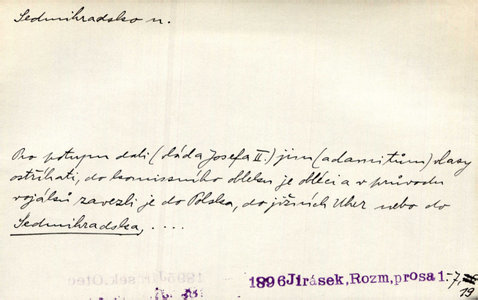 Sedmihradsko n.
Pro potupu dali (vláda Josefa II.) jim (adamitům) vlasy
ostříhati, do komissního obleku je obléci a v průvodu
vojáků zavezli je do Polska, do jižních Uher nebo do
Sedmihradska, ....
1896 Jirásek, Rozm, prosa 1.
19